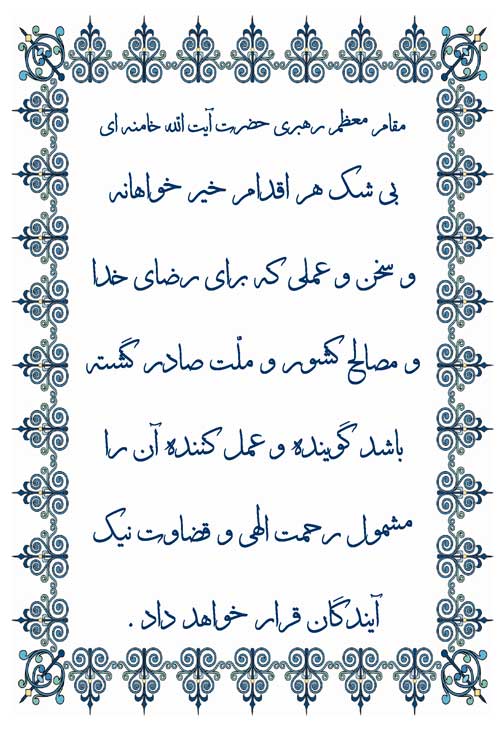 مقام معظم رهبری حضرت آیت الله خامنه ای
بی شک هر اقدام خیر خواهانه
و سخن و عملی که برای رضای خدا
و مصالح کشور و ملّت صادر گشته
باشد گوینده و عمل کننده آن را
مشمول رحمت الهی و قضاوت نیک
آیندگان قرار خواهد داد .